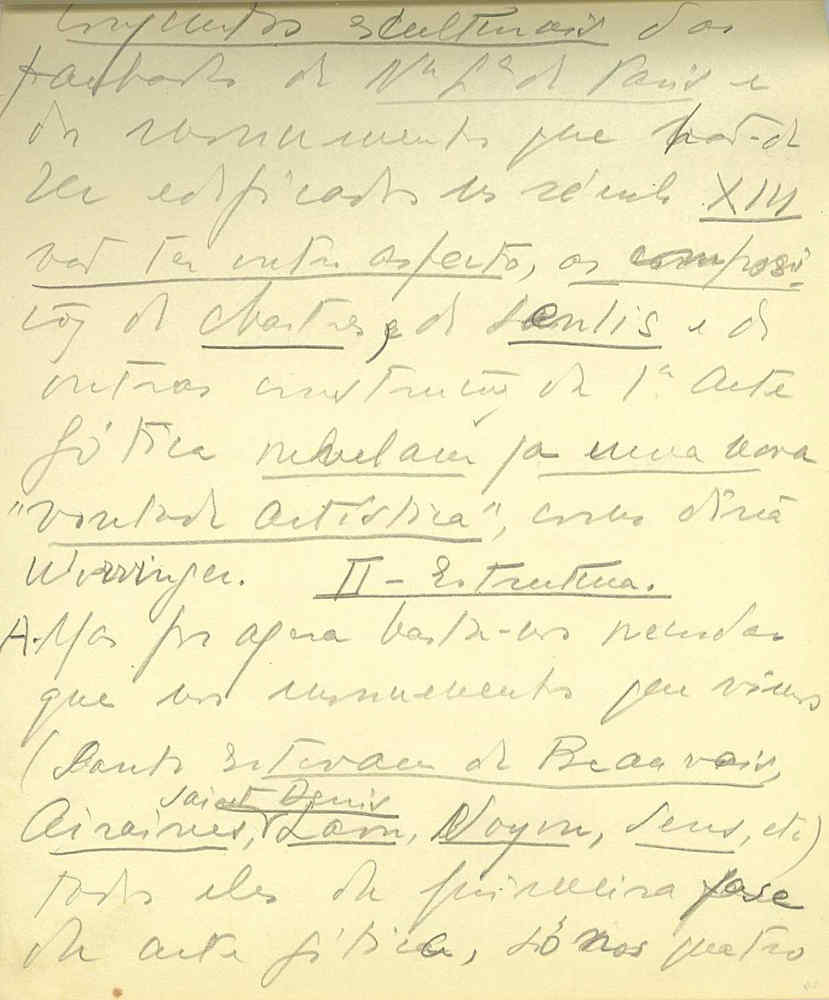 conjuntos esculturais das
fachadas de Nª Sª de Paris e
de monumentos que hão-de
ser edificados no século XIII
vão ter outro aspecto, as composi-
ções de Chartres, e de Senlis e de
outras construções da 1ª Arte
gótica revelam já uma nova
"vontade artística", como diria
Worringer. II - Estrutura.
A. Mas por agora basta-nos recordar
que nos monumentos que vimos
(Santo Estevam de Beauvais,
Saint Denis
Airaines, Laon, Noyon, Sens, etc)
todos eles da primeira fase
da arte gótica, só nos quatro